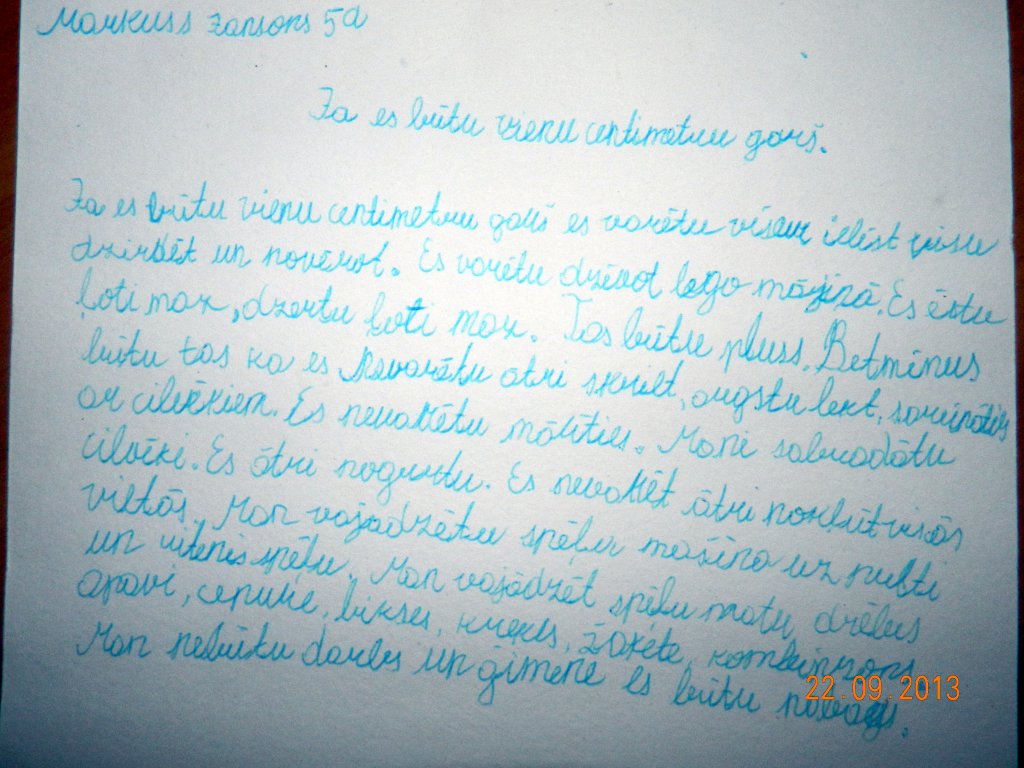 Markuss Zansons 5a
Ja es būtu vienu centimetru garš.
Ja es būtu vienu centimetru garš es varētu visur ielīst visu
dzirdēt un novērot. Es varētu dzīvot lego mājiņā. Es ēstu
ļoti maz, dzertu ļoti maz. Tas būtu pluss. Bet mīnus
būtu tas ka es nevarētu ātri skriet, augstu lekt, sarunāties
ar cilvēkiem. Es nevarētu mācīties. Mani sabradātu
cilvēki. Es ātri nogurtu. Es nevarēt ātri nokļūt visās
vietās. Man vajadzētu spēļu mašīna uz pulti
un spēļu. Man vajadzēt spēļu matu, drēbes
apavi, cepure, bikses, krekls, žakete, kombinzons
Man nebūtu darbs un ģimene es būtu nabags.
22.09.2013